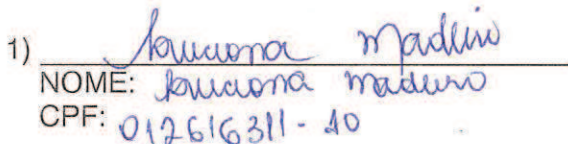 1) Luciona Madeiro
NOME: Luciona Madeiro
CPF: 012616311-10